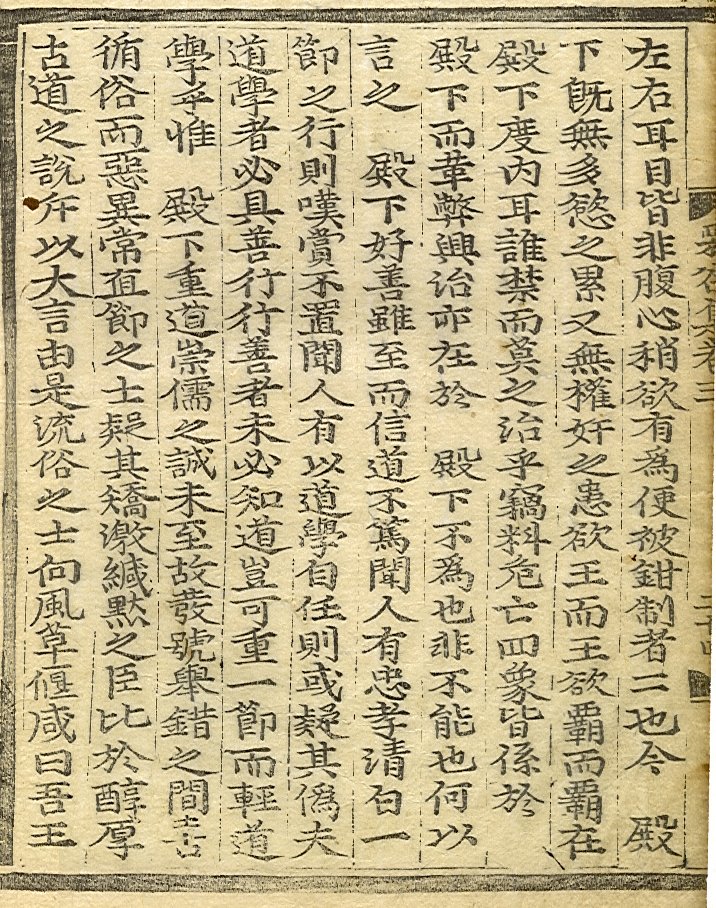 左右耳目皆非腹心稍欲有爲便被鉗制者二也今　殿
下旣無多慾之累又無權奸之患欲王而王欲覇而覇在
殿下度內耳誰禁而莫之治乎竊料危亡四象皆係於
殿下而革弊興治亦在於　殿下不爲也非不能也何以
言之　殿下好善雖至而信道不篤聞人有忠孝清白一
節之行則嘆賞不置聞人有以道學自任則或疑其僞夫
道學者必具善行行善者未必知道豈可重一節而輕道
學乎惟　殿下重道崇儒之誠未至故發號舉錯之間喜
循俗而惡異常直節之士疑其矯激緘默之臣比於醇厚
古道之說斥以大言由是流俗之士向風草偃咸曰吾王